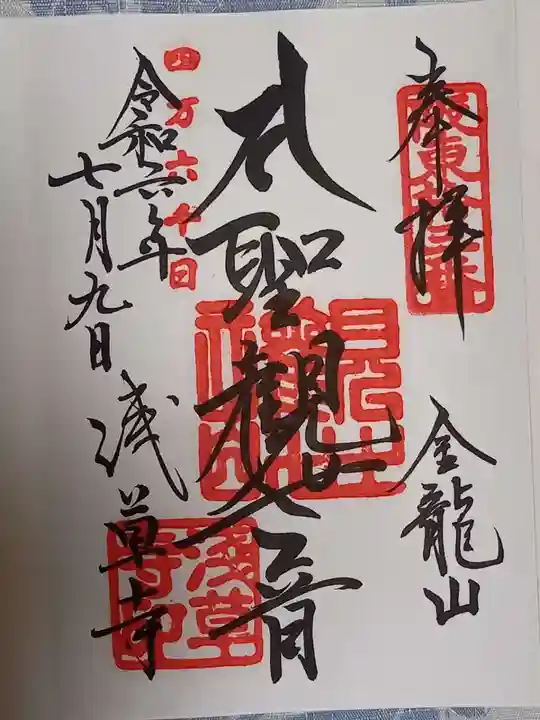 奉拝
金龍山
聖観世音
四万六千日
令和六年
七月九日
浅草寺
浅草寺印